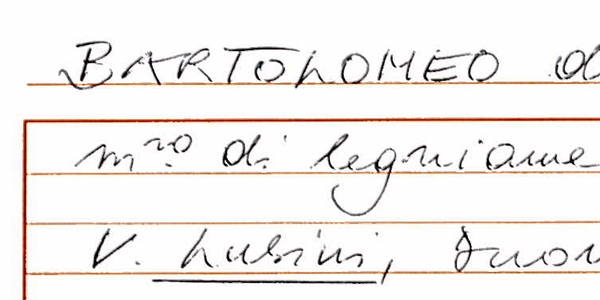 BARTOLOMEO d
m.ro di legniame
V. Lusini, Duom